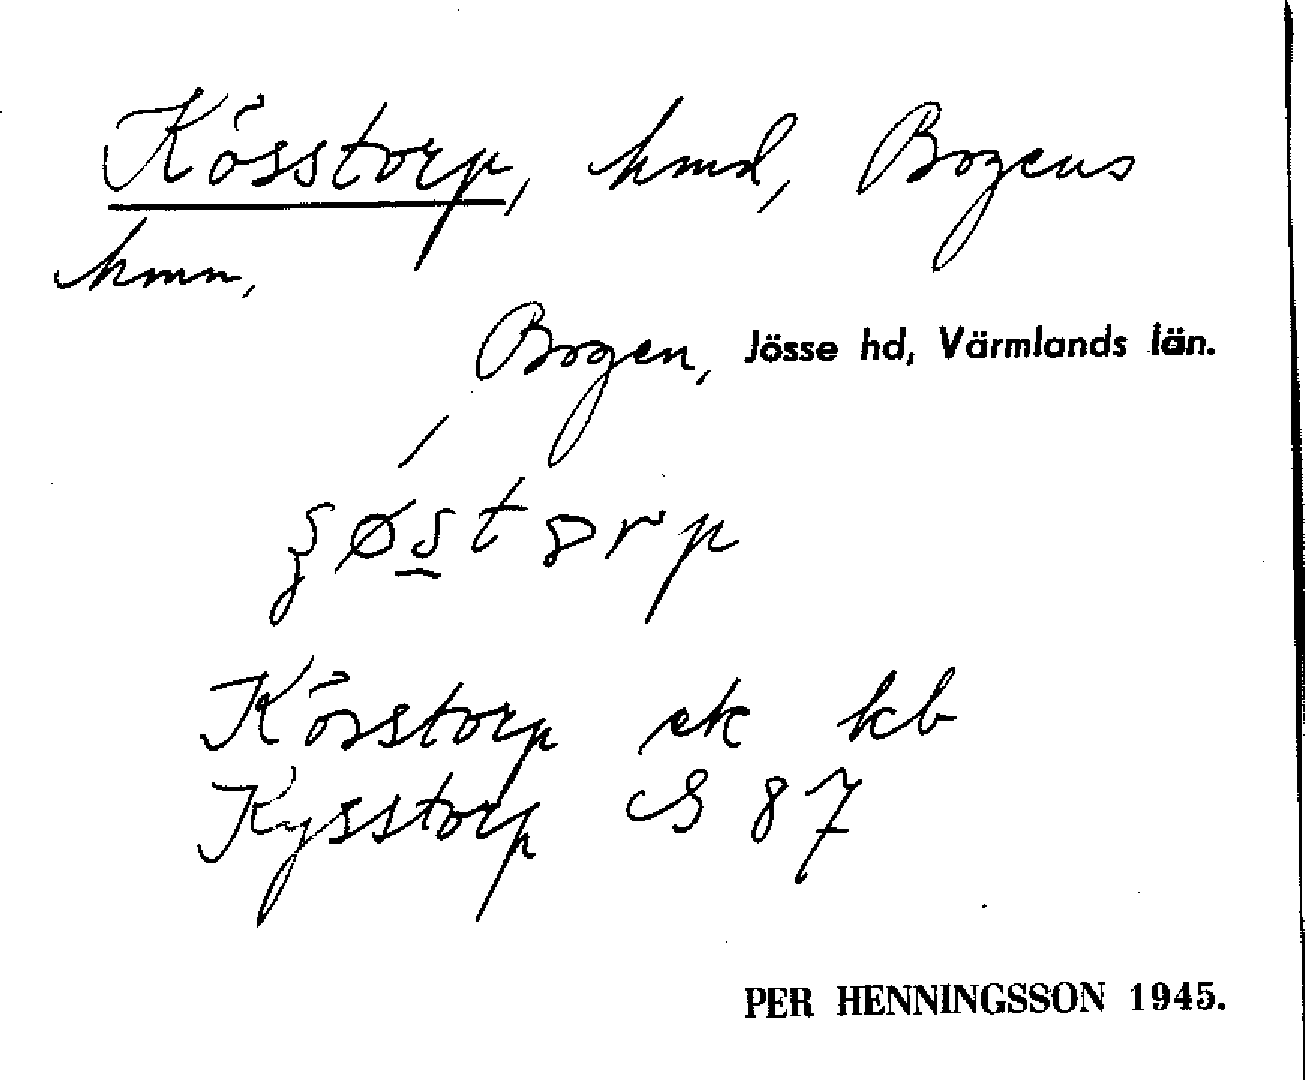 Kösstorp, hmd, Bogens
hmn,
Bogen, Jösse hd, Värmlands län.
Kösstorp ek kb
Kysstorp GS 87
PER HENNINGSSON 1945.